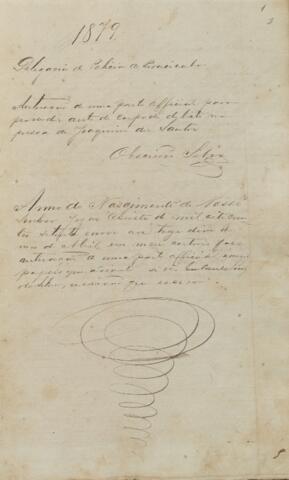 1879
Delegacia de Policia de Piracicaba
Autuação de uma parte official para
proceder auto de corpo de delicto na
pessoa de Joaquim dos Santos
O Escrivão Silva
Anno do Nascimento de Nosso
Senhor Jesus Christo de mil oito cen
tos setenta e nove aos treze dias do
mes de Abril em meu cartorio faço
autuação a uma parte official
papeis que
escrivão que escrevi